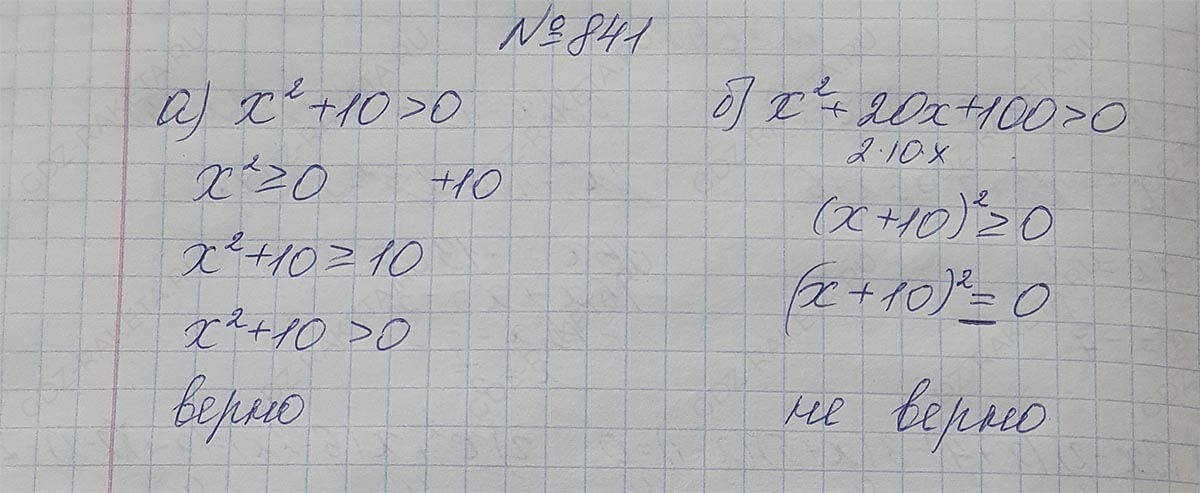 №841
а) x² + 10 > 0
x² ≥ 0 +10
x² + 10 ≥ 10
x² + 10 > 0
верно
б) x² + 20x + 100 > 0
2·10·x
(x + 10)² ≥ 0
(x + 10)² = 0
не верно